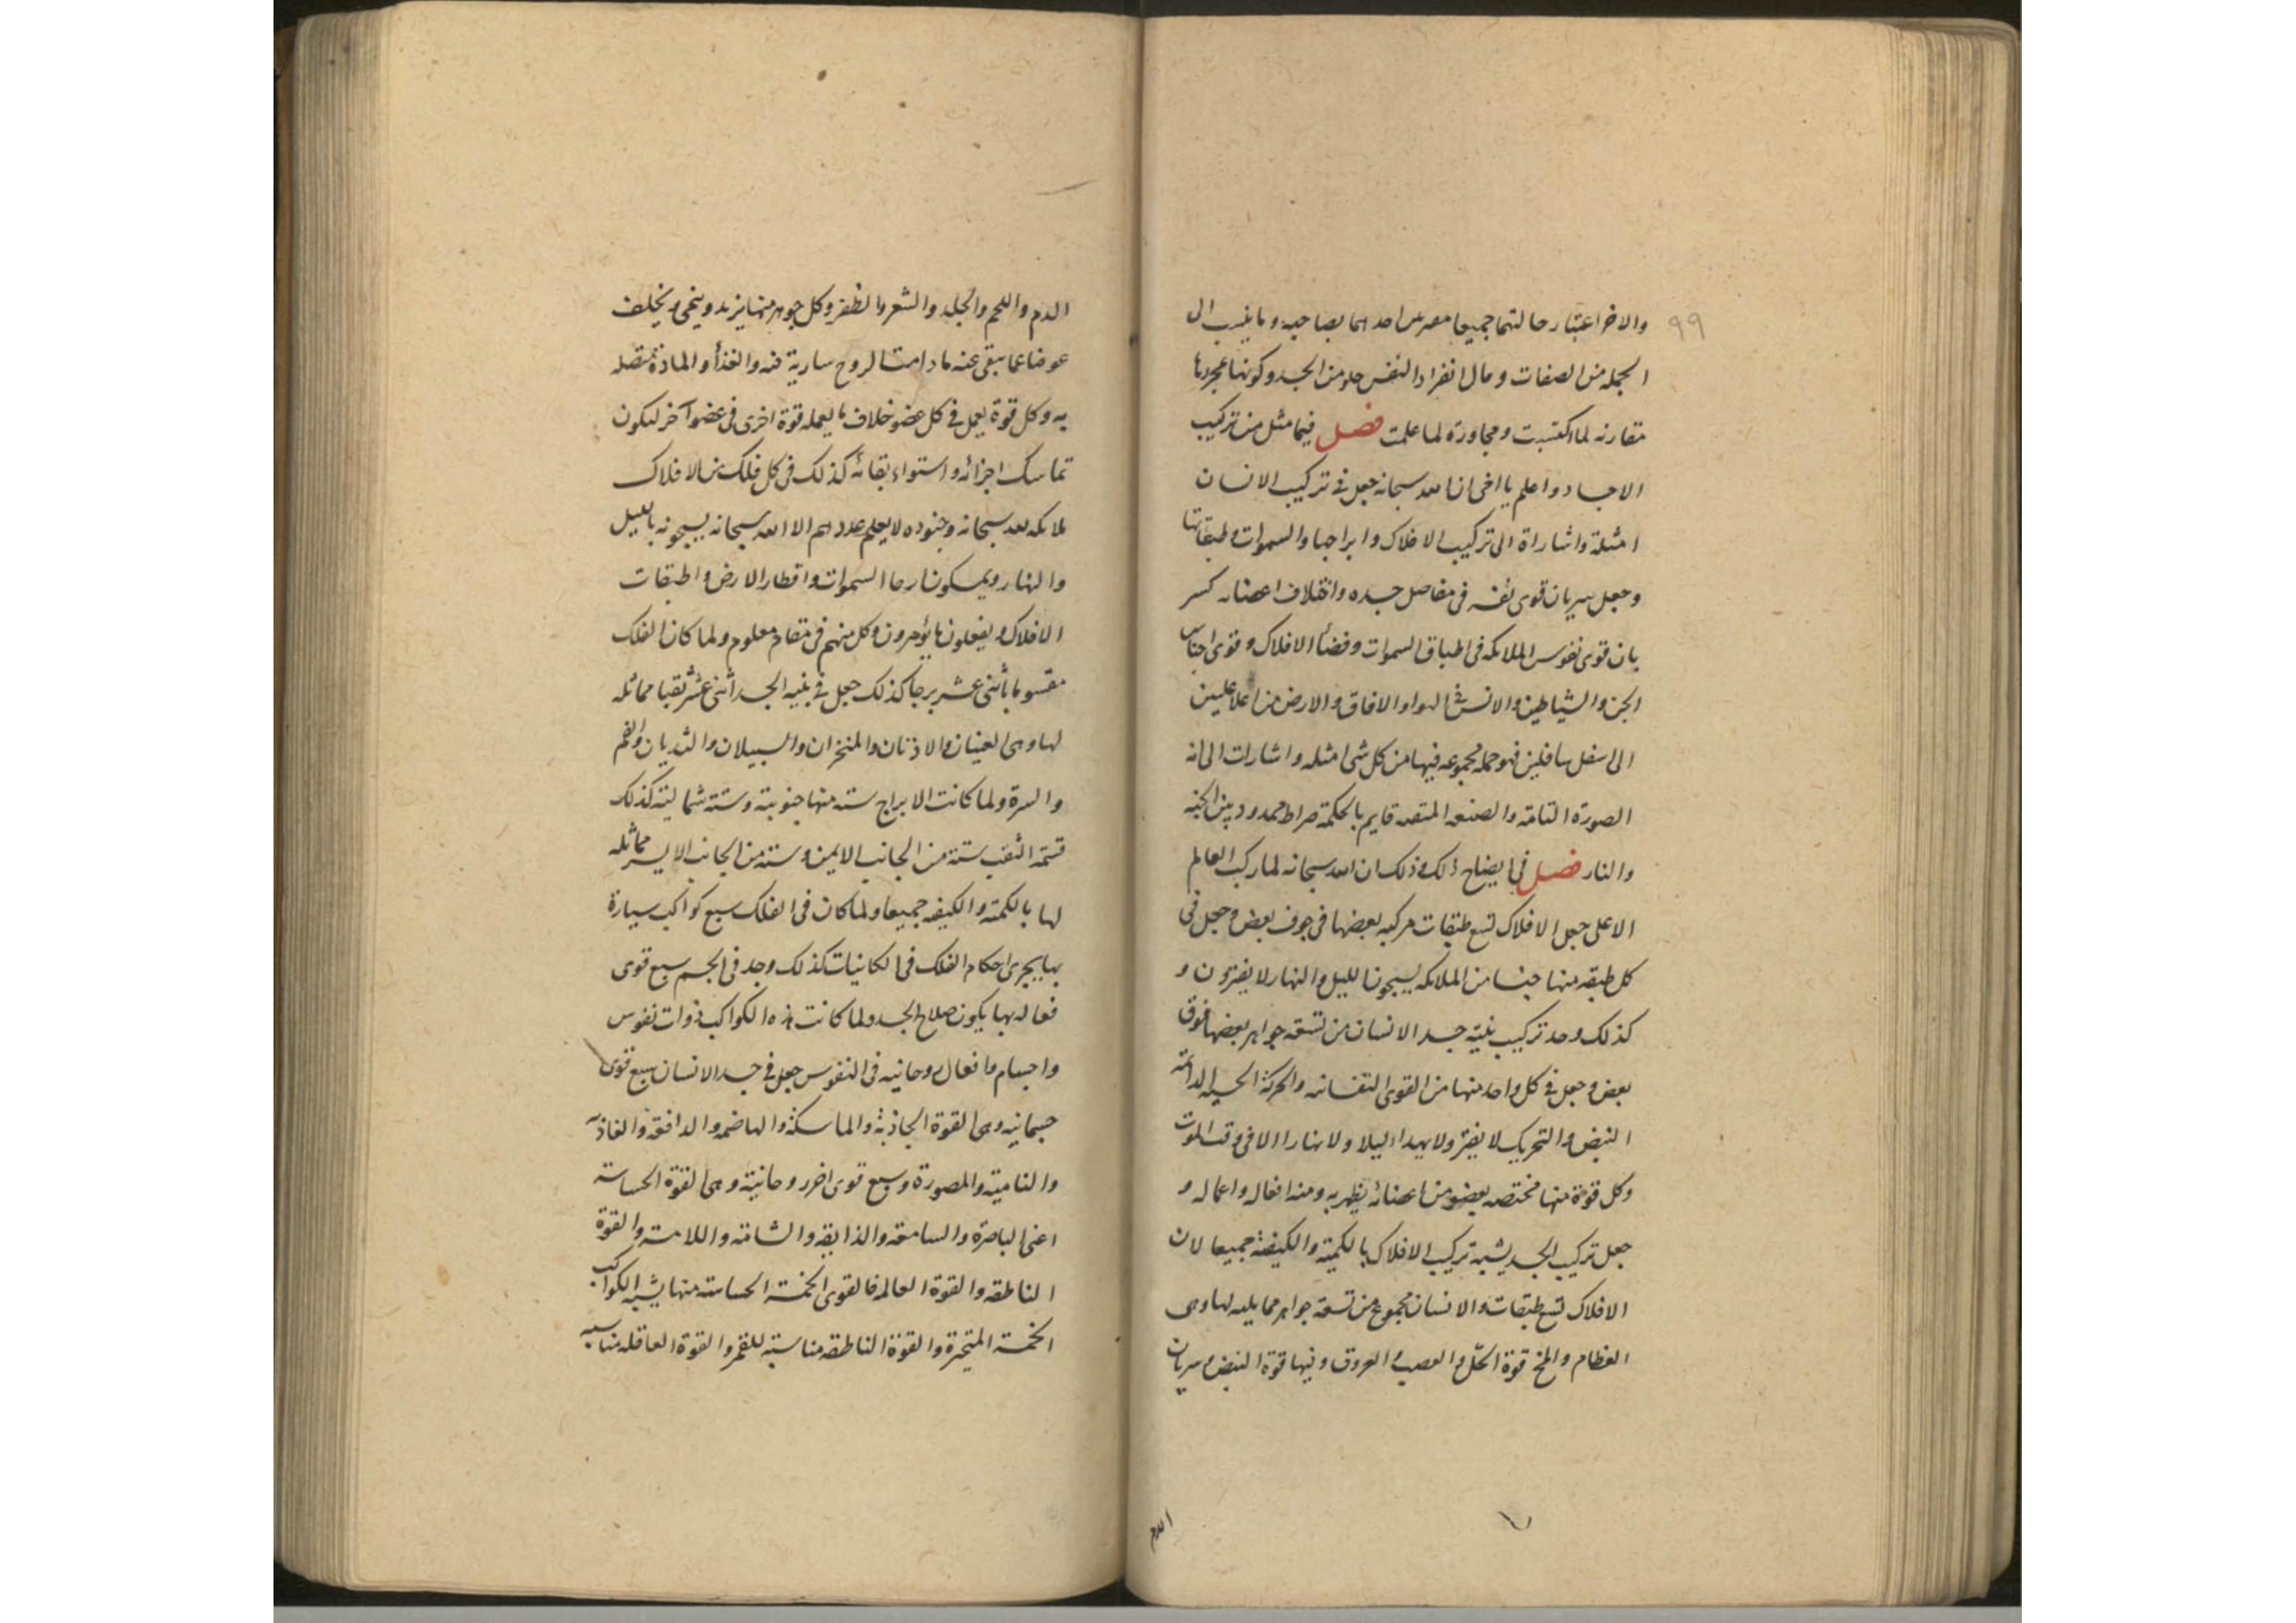 ٩٩
والاخر اعتبار حالتهما جميعا احدهما بصاحبه وما ينسب الى
الجمله من الصفات وحال انفراد النفس خلو من الجسد وكونها مجردة
مقارنه لما اكتسبت ومجاورة لما علمت فصل فيما مثل من تركيب
الاجساد واعلم يا اخى ان الله سبحانه جعل فى تركيب الانسان
امثلة واشاراة الى تركيب الافلاك وابراجها والسموات وطبقاتها
وجعل سريان قوى نفسه فى مفاصل جسده واختلاف اعضائه كسر
يان قوى نفوس الملائكه فى اطباق السموات وفضأ الافلاك وقوى اجناس
الجن والشياطين والانس فى الهواء والافاق والارض من اعلا عليين
الى اسفل سافلين فهو جمله مجموعه فيها من كل شى امثله واشارات الى انه
الصورة التامة والصنعه المتقنه قايم بالحكمة صراط ممدود بين الجنه
والنار فصل فى ايضاح ذلك وذلك ان الله سبحانه لما ركب العالم
الاعلى جعل الافلاك تسع طبقات مركبه بعضها فى جوف بعض وجعل فى
كل طبقه منها جنسا من الملائكه يسبحون الليل والنهار لا يفترون و
كذلك وجد تركيب بنية جسد الانسان من تسعة جواهر بعضها فوق
بعض وجعل فى كل واحد منها من القوى النفسانيه والحركة الحسيه الدائمة
النبض والتحريك لا يفتر ولا يهداء ليلا ولا نهارا الا فى وقت الموت
وكل قوة منها مختصه بعضو من اعضائه يظهر به ومنه افعاله واعماله و
جعل تركيب الجسد يشبه تركيب الافلاك بالكمية والكيفية جميعا لان
الافلاك تسع طبقات والانسان مجموع من تسعة جواهر مما يليه لها وهى
العظام والمخ قوة الحل والعصب والعروق وفيها قوة النبض وسريان
الدم
الدم واللحم والجلد والشعر والظفر وكل جوهر منها يزيد وينمى ويخلف
عوضا عما يبقى عنه ما دامت الروح سارية فيه والغذأ والمادة متصله
به وكل قوة يعمل فى كل عضو خلاف ما يعمله قوة اخرى فى عضو آخر ليكون
تماسك اجزائه واستواء بقائه كذلك فى كل فلك من الافلاك
ملائكه لله سبحانه وجنوده لا يعلم عددهم الا الله سبحانه يسبحونه بالليل
والنهار ويمسكون ارجا السموات واقطار الارض واطبقات
الافلاك ويفعلون ما يؤمرون وكل منهم فى مقام معلوم ولما كان الفلك
مقسوما باثنى عشر برجا كذلك جعل فى بنيه الجسد اثنى عشر ثقبا مماثله
لها وهى العينان والاذنان والمنخران والسبيلان والثديان والفم
والسرة ولما كانت الابراج سته منها جنوبية وستة شمالية كذلك
قسمة الثقب ستة من الجانب الايمن وستة من الجانب الايسر مماثله
لها بالكمية والكيفيه جميعا ولما كان فى الفلك سبع كواكب سيارة
بها يجرى احكام الفلك فى الكائنات كذلك وجد فى الجسم سبع قوى
فعاله بها يكون صلاح الجسد ولما كانت هذه الكواكب ذوات نفوس
واجسام وافعال روحانيه فى النفوس جعل فى جسد الانسان سبع قوى
جسمانيه وهى القوة الجاذبة والماسكة والهاضمه والدافعة والغاذيه
والنامية والمصورة وسبع قوى اخر روحانية وهى القوة الحساسة
اعنى الباصرة والسامعه والذايقه والشامه واللامسه والقوة
الناطقه والقوة العالمه فالقوى الخمسة الحساسه منها يشبه الكواكب
الخمسة المتحيرة والقوة الناطقه مناسبة للقمر والقوة العاقله مناسبه